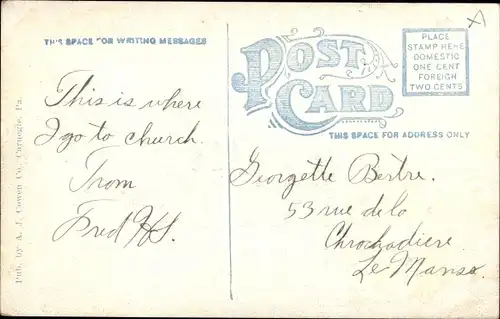 THIS SPACE FOR WRITING MESSAGES
POST CARD
THIS SPACE FOR ADDRESS ONLY
PLACE
STAMP HERE
DOMESTIC
ONE CENT
FOREIGN
TWO CENTS
This is where
I go to church.
From
Fred H.S.
Georgette Bertre.
53 rue de la
Chrochadiere
Le Manse.
Pub. by A. J. Cowen Co., Carnegie, Pa.